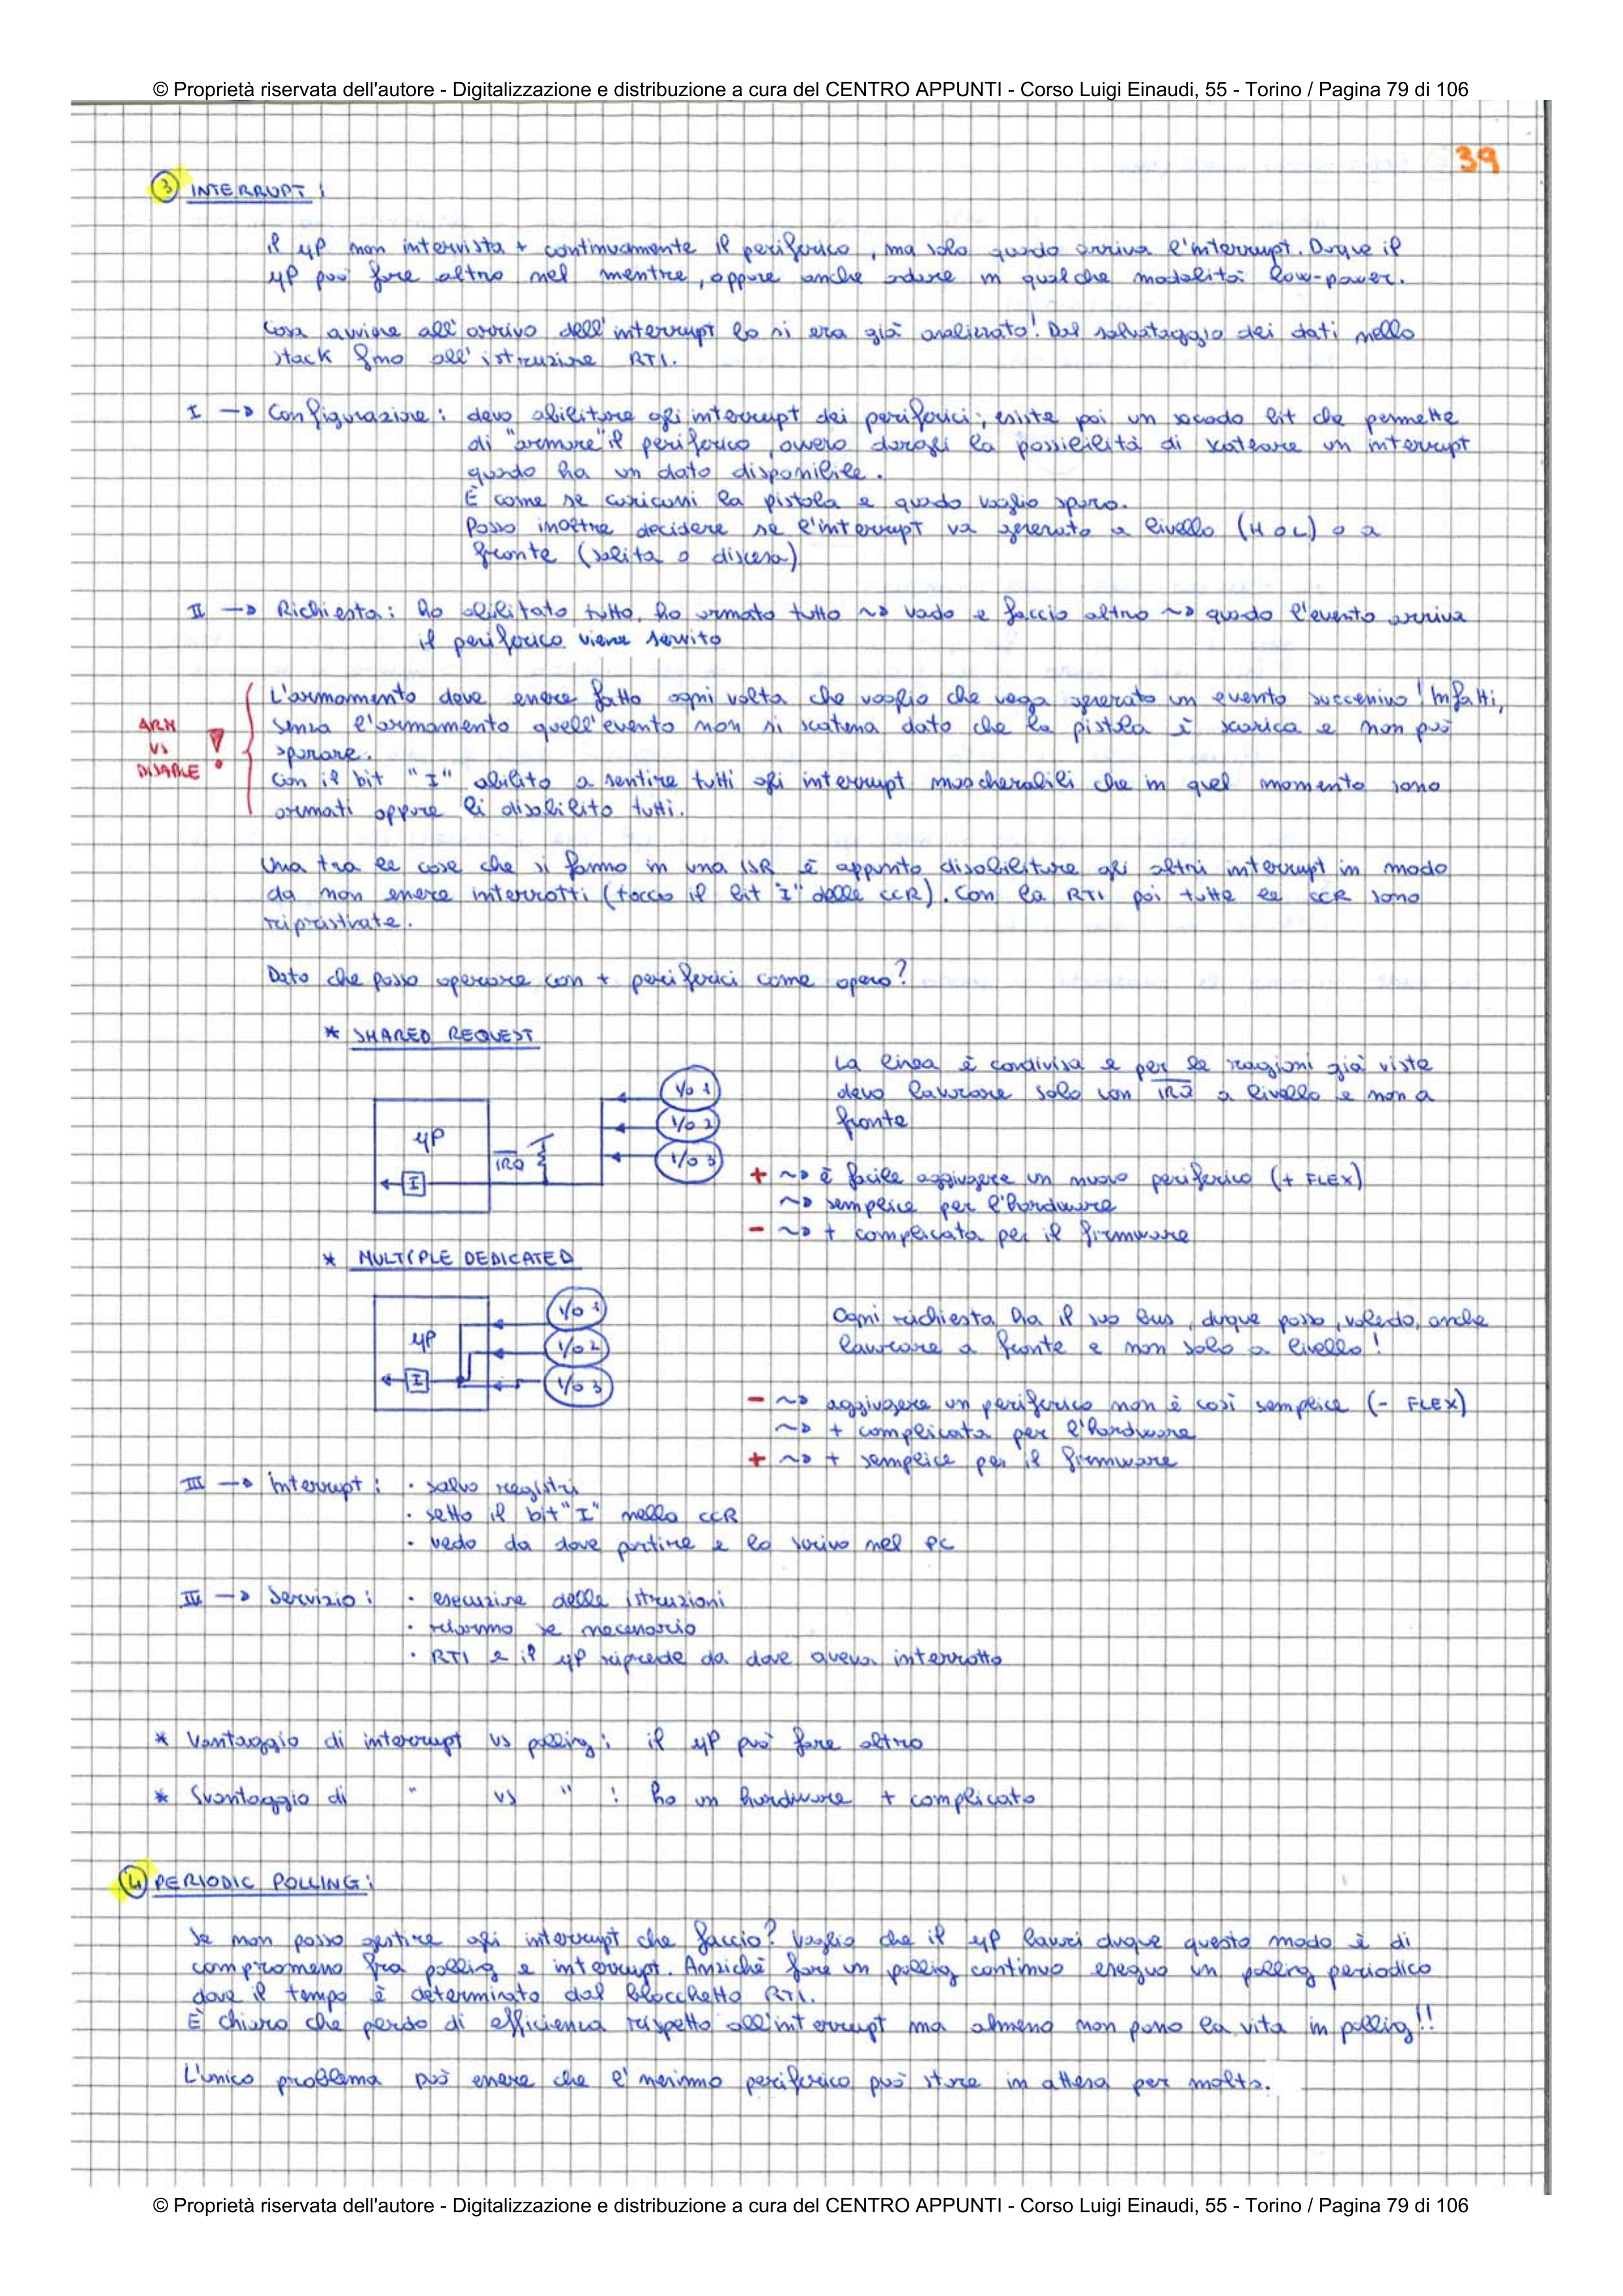 © Proprietà riservata dell'autore - Digitalizzazione e distribuzione a cura del CENTRO APPUNTI - Corso Luigi Einaudi, 55 - Torino / Pagina 79 di 106
39
3 INTERRUPT:
il μP non intervista + continuamente il periferico, ma solo quando arriva l'interrupt. Dunque il
μP può fare altro nel mentre, oppure anche andare in qualche modalità low-power.
Cosa avviene all'arrivo dell'interrupt lo si era già analizzato! Dal salvataggio dei dati nello
stack fino all'istruzione RTI.
I → Configurazione: devo abilitare gli interrupt dei periferici; esiste poi un secondo bit che permette
di "armare" il periferico, ovvero dargli la possibilità di scatenare un interrupt
quando ha un dato disponibile.
È come se caricassi la pistola e quando voglio sparo.
Posso inoltre decidere se l'interrupt va generato a livello (H o L) o a
fronte (salita o discesa)
II → Richiesta: ho abilitato tutto, ho armato tutto ~> vado e faccio altro ~> quando l'evento arriva
il periferico viene servito
L'armamento deve essere fatto ogni volta che voglio che venga generato un evento successivo! Infatti,
ARM
VS
DISABLE !
senza l'armamento quell'evento non si scatena dato che la pistola è scarica e non può
sparare.
Con il bit "I" abilito a sentire tutti gli interrupt mascherabili che in quel momento sono
armati oppure li disabilito tutti.
Una tra le cose che si fanno in una ISR è appunto disabilitare gli altri interrupt in modo
da non essere interrotti (tocco il bit "I" delle CCR). Con la RTI poi tutte le CCR sono
ripristinate.
Dato che posso operare con + periferici come opero?
* SHARED REQUEST
La linea è condivisa e per le ragioni già viste
devo lavorare solo con IRQ a livello e non a
fronte
I/O 1
I/O 2
I/O 3
μP
IRQ
I
+ ~> è facile aggiungere un nuovo periferico (+ FLEX)
~> semplice per l'hardware
- ~> + complicata per il firmware
* MULTIPLE DEDICATED
I/O 1
I/O 2
I/O 3
μP
I
Ogni richiesta ha il suo bus, dunque posso, volendo, anche
lavorare a fronte e non solo a livello!
- ~> aggiungere un periferico non è così semplice (- FLEX)
~> + complicata per l'hardware
+ ~> + semplice per il firmware
III → Interrupt: · salvo registri
· setto il bit "I" nella CCR
· vedo da dove partire e lo scrivo nel PC
IV → Servizio: · esecuzione delle istruzioni
· riarmo se necessario
· RTI e il μP riprende da dove aveva interrotto
* Vantaggio di interrupt vs polling: il μP può fare altro
* Svantaggio di " vs " : ho un hardware + complicato
4 PERIODIC POLLING:
Se non posso gestire gli interrupt che faccio? Voglio che il μP lavori dunque questo modo è di
compromesso fra polling e interrupt. Anziché fare un polling continuo eseguo un polling periodico
dove il tempo è determinato dal blocchetto RTI.
È chiaro che perdo di efficienza rispetto all'interrupt ma almeno non passo la vita in polling!!
L'unico problema può essere che l'n-esimo periferico può stare in attesa per molto.
© Proprietà riservata dell'autore - Digitalizzazione e distribuzione a cura del CENTRO APPUNTI - Corso Luigi Einaudi, 55 - Torino / Pagina 79 di 106